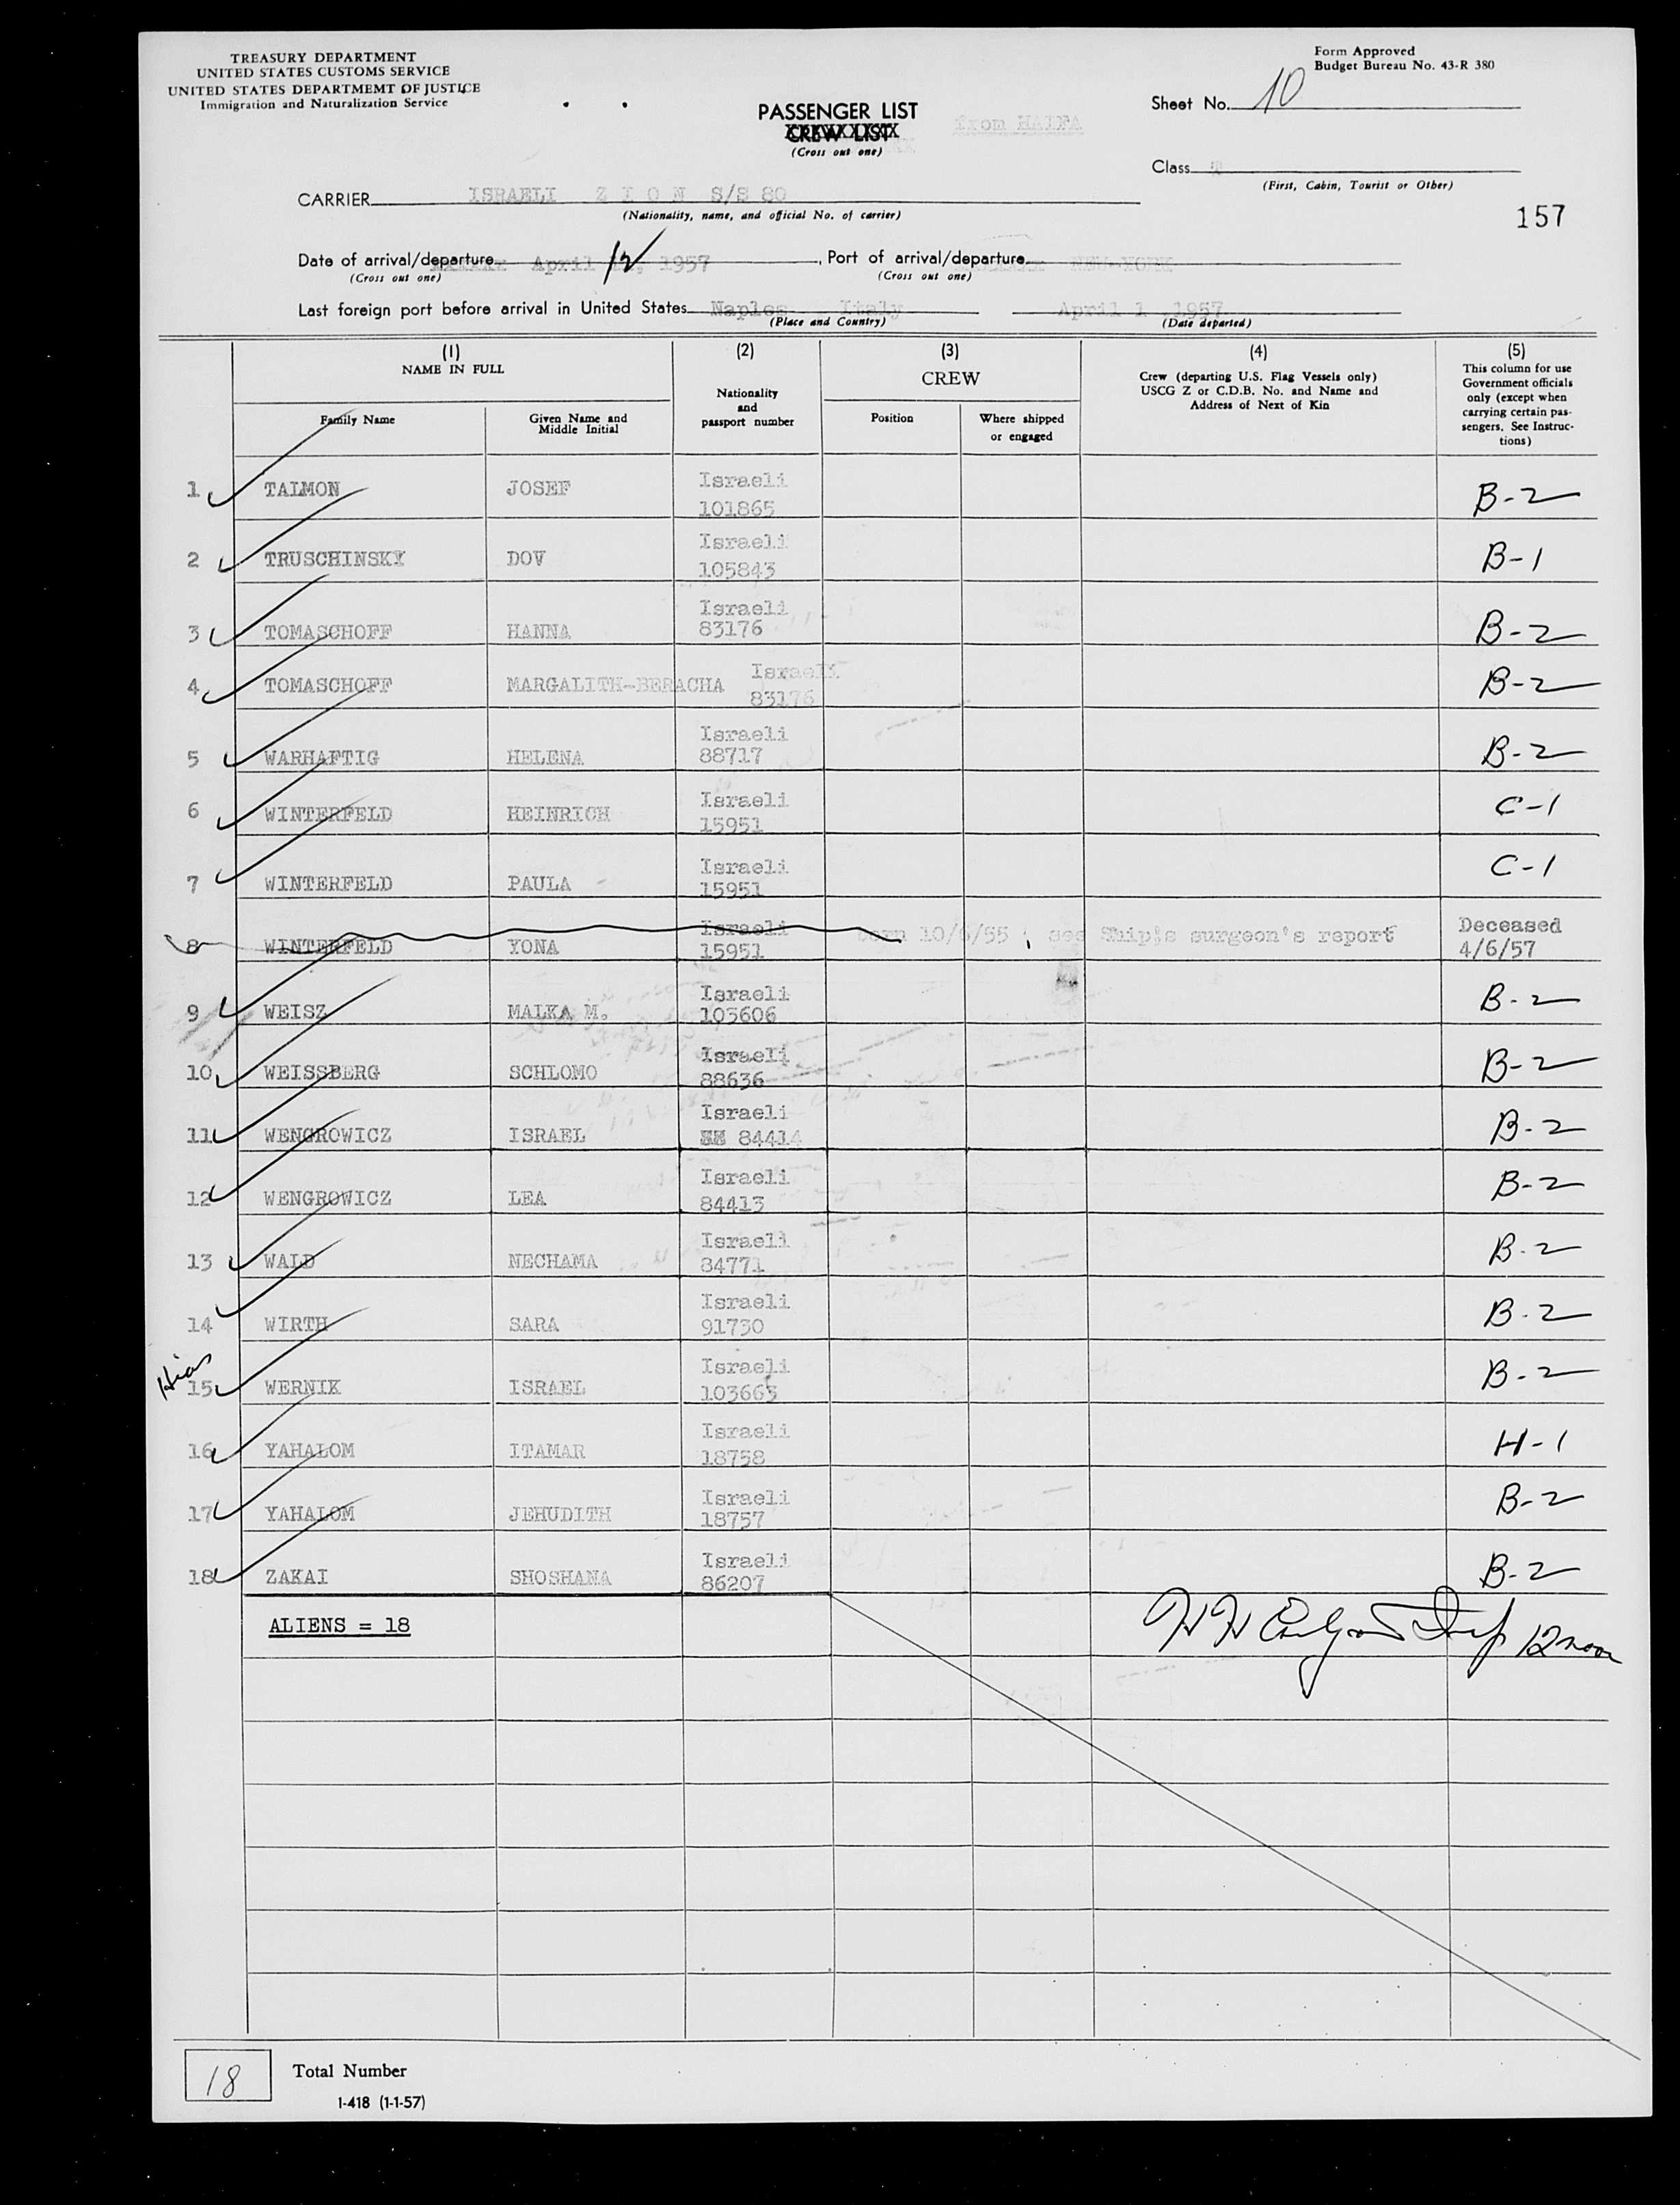 TREASURY DEPARTMENT
UNITED STATES CUSTOMS SERVICE
UNITED STATES DEPARTMEMT OF JUSTICE
Immigration and Naturalization Service
Form Approved
Budget Bureau No. 43-R 380
PASSENGER LIST
CREW LIST
(Cross out one)
from HAIFA
Sheet No. 10
Class
(First, Cabin, Tourist or Other)
CARRIER ISRAELI Z I O N S/S 80
(Nationality, name, and official No. of carrier)
157
Date of arrival/departure April 12, 1957, Port of arrival/departure NEW-YORK
(Cross out one) (Cross out one)
Last foreign port before arrival in United States Naples Italy April 1 1957
(Place and Country) (Date departed)
(1) (2) (3) (4) (5)
NAME IN FULL
Family Name
Given Name and Middle Initial
Nationality and passport number
CREW
Position
Where shipped or engaged
Crew (departing U.S. Flag Vessels only)
USCG Z or C.D.B. No. and Name and
Address of Next of Kin
This column for use
Government officials
only (except when
carrying certain pas-
sengers. See Instruc-
tions)
1 TALMON JOSEF Israeli 101865 B-2
2 TRUSCHINSKY DOV Israeli 105843 B-1
3 TOMASCHOFF HANNA Israeli 83176 B-2
4 TOMASCHOFF MARGALITH-BERACHA Israeli 83176 B-2
5 WARHAFTIG HELENA Israeli 88717 B-2
6 WINTERFELD HEINRICH Israeli 15951 C-1
7 WINTERFELD PAULA Israeli 15951 C-1
8 WINTERFELD YONA Israeli 15951 born 10/6/55 , see Ship's surgeon's report Deceased 4/6/57
9 WEISZ MALKA M. Israeli 103606 B-2
10 WEISSBERG SCHLOMO Israeli 88636 B-2
11 WENGROWICZ ISRAEL Israeli 84414 B-2
12 WENGROWICZ LEA Israeli 84413 B-2
13 WALD NECHAMA Israeli 84771 B-2
14 WIRTH SARA Israeli 91730 B-2
Hias
15 WERNIK ISRAEL Israeli 103663 B-2
16 YAHALOM ITAMAR Israeli 18758 H-1
17 YAHALOM JEHUDITH Israeli 18757 B-2
18 ZAKAI SHOSHANA Israeli 86207 B-2
ALIENS = 18
12 noon
18 Total Number
I-418 (1-1-57)